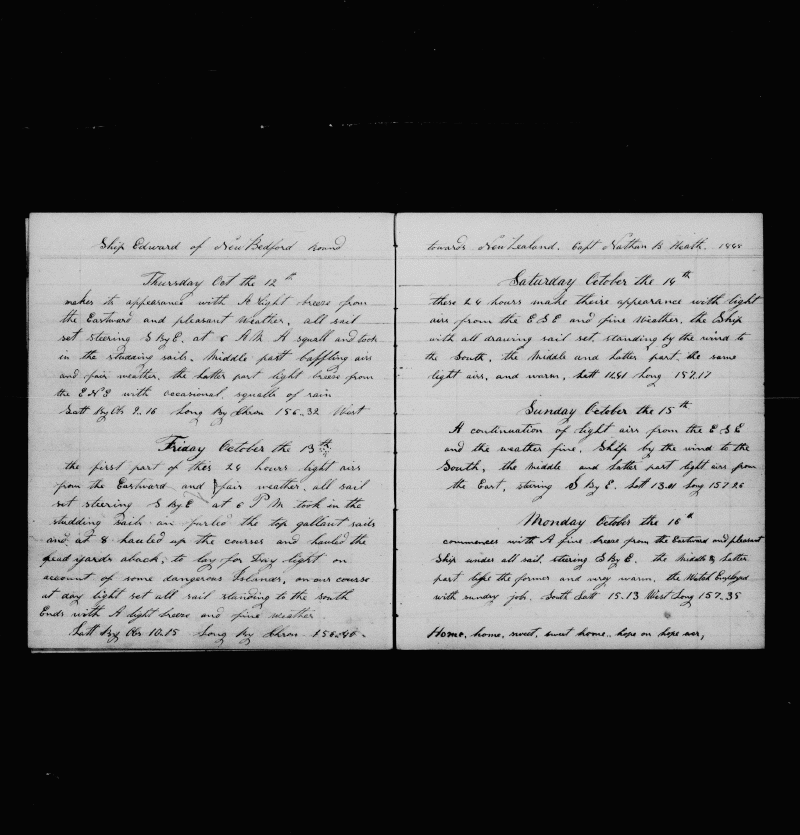 Ship Edward of New Bedford bound
Thursday Oct the 12th
makes its appearance with A light breeze from
the Eastward and pleasant weather, all sail
set steering S By E. at 6 A M A squall and took
in the studding sails. Middle part baffling airs
and fair weather, the latter part light breeze from
the E N E with occasional squalls of rain
Latt By Ob 9..16 Long By Chron 156..32 West
Friday October the 13th
the first part of this 24 hours light airs
from the Eastward and fair weather. all sail
set steering S By E at 6 P M took in the
studding sails an furled the top gallant sails
and at 8 hauled up the courses and hauled the
head yards aback, to lay for Day light on
account of some dangerous Islands, on our course
at day light set all sail standing to the south
Ends with A light breeze and fine weather.
Latt By Ob 10..15 Long By Chron 156..40.
towards New Zealand. Capt Nathan B Heath. 1848
Saturday October the 14th
these 24 hours make theire appearance with light
airs from the E S E and fine Weather. the Ship
with all drawing sail set, standing by the wind to
the South, the Middle and Latter part, the same
light airs, and warm, Latt 12.51 Long 157.17
Sunday October the 15th
A continuation of light airs from the E S E
and the weather fine. Ship by the wind to the
South, the Middle and Latter part light airs from
the East, stering S By E. Latt 13.41 Long 157 26
Monday October the 16th
commences with A fine breeze from the Eastward and pleasant
Ship under all sail, stering S By E. the Middle & Latter
part like the former and very warm. the Watch Employed
with sundry job. South Latt 15.13 West Long 157.35
Home, home, sweet, sweet home.. hope on hope ever,